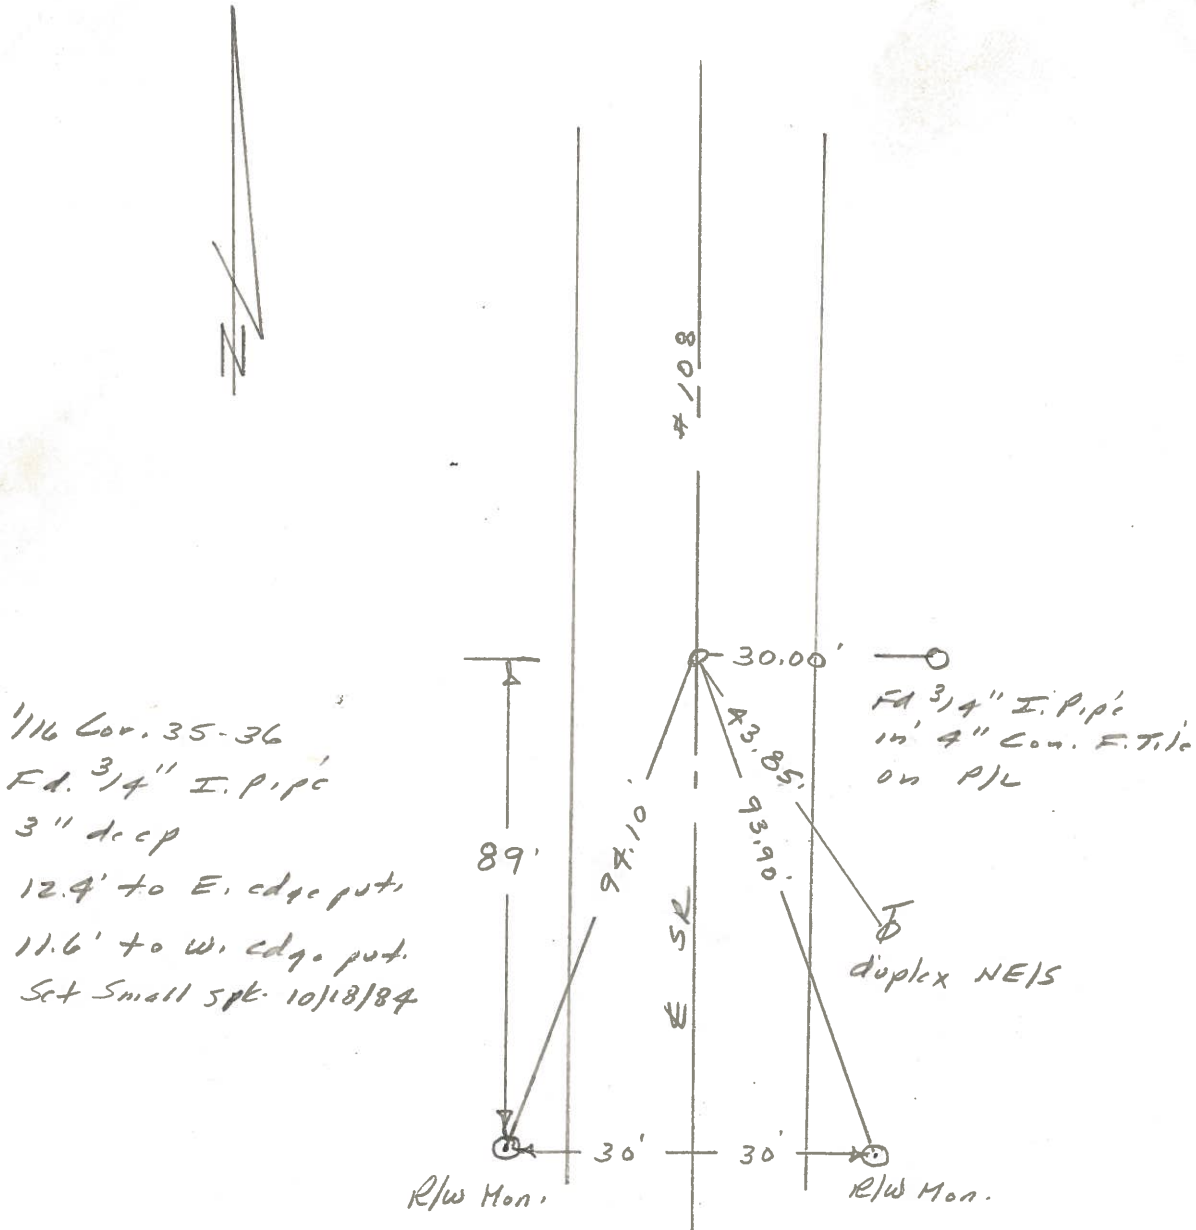 N
# 108
30.00'
Fd 3/4" I. Pipe
in 4" Con. F. Tile
on P/L
1/16 Cor. 35-36
Fd. 3/4" I. Pipe
3" deep
12.4' to E. edge pvt.
11.6' to W. edge pvt.
Set Small spk. 10/18/84
89'
94.10'
43.85'
93.90'
SR
duplex NE/S
30'
30'
R/W Mon.
R/W Mon.